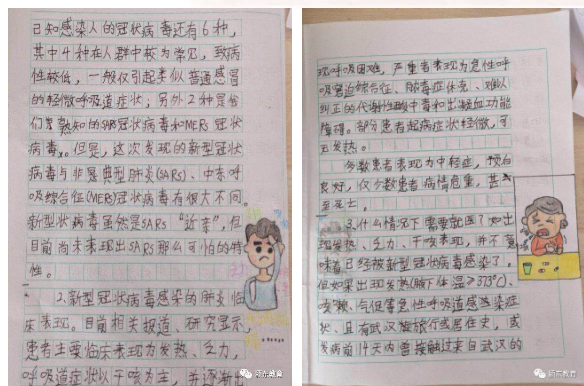 已知感染人的冠状病毒还有6种,
其中4种在人群中较为常见,致病
性较低,一般仅引起类似普通感冒
的轻微呼吸道症状;另外2种是我
们熟知的SARS冠状病毒和MERS冠状
病毒。但是,这次发现的新型冠状
病毒与非典型肺炎(SARS)、中东呼
吸综合征(MERS)冠状病毒有很大不同。
新型状病毒虽然是SARS“近亲”,但
目前尚未表现出SARS那么可怕的特
性。
2.新型冠状病毒感染的肺炎临
床表现。目前相关报道、研究显示,
患者主要临床表现为发热、乏力,
呼吸道症状以干咳为主,并逐渐出
现呼吸困难,严重者表现为急性呼
吸窘迫综合征、脓毒症休克、难以
纠正的代谢性酸中毒和出凝血功能
障碍。部分患者起病症状轻微,可
无发热。
多数患者表现为中轻症,预后
良好,仅少数患者病情危重,甚
至死亡。
3.什么情况下需要就医?如出
现发热、乏力、干咳表现,并不意
味着已经被新型冠状病毒感染了。
但如果出现发热(腋下体温≥37.3℃)、
咳嗽、气促等急性呼吸道感染症
状,且有武汉旅行或居住史,或
发病前14天内曾接触过来自武汉的
师东教育
师东教育